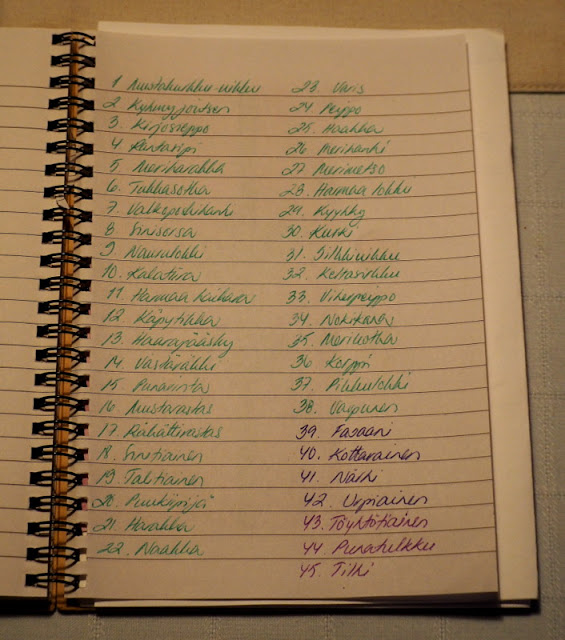 1 Mustakurkku-uikku
2 Kyhmyjoutsen
3. Kirjosieppo
4 Rantasipi
5. Meriharakka
6. Tukkasotka
7. Valkoposkihanhi
8 Sinisorsa
9. Naurulokki
10. Kalatiira
11. Harmaa haikara
12. Käpytikka
13. Haarapääsky
14. Västäräkki
15. Punarinta
16 Mustarastas
17. Räkättirastas
18. Sinitiainen
19. Talitiainen
20. Puukiipijä
21. Harakka
22. Naakka
23. Varis
24 Peippo
25. Haahka
26 Merihanhi
27 Merimetso
28. Harmaa lokki
29. Kyyhky
30. Kurki
31. Silkkiuikku
32. Keltasirkku
33. Viherpeippo
34. Nokikana
35. Merikotka
36 Korppi
37. Pikkulokki
38. Varpunen
39. Fasaani
40. Kottarainen
41. Närhi
42. Urpiainen
43. Töyhtötiainen
44. Punatulkku
45. Tilhi